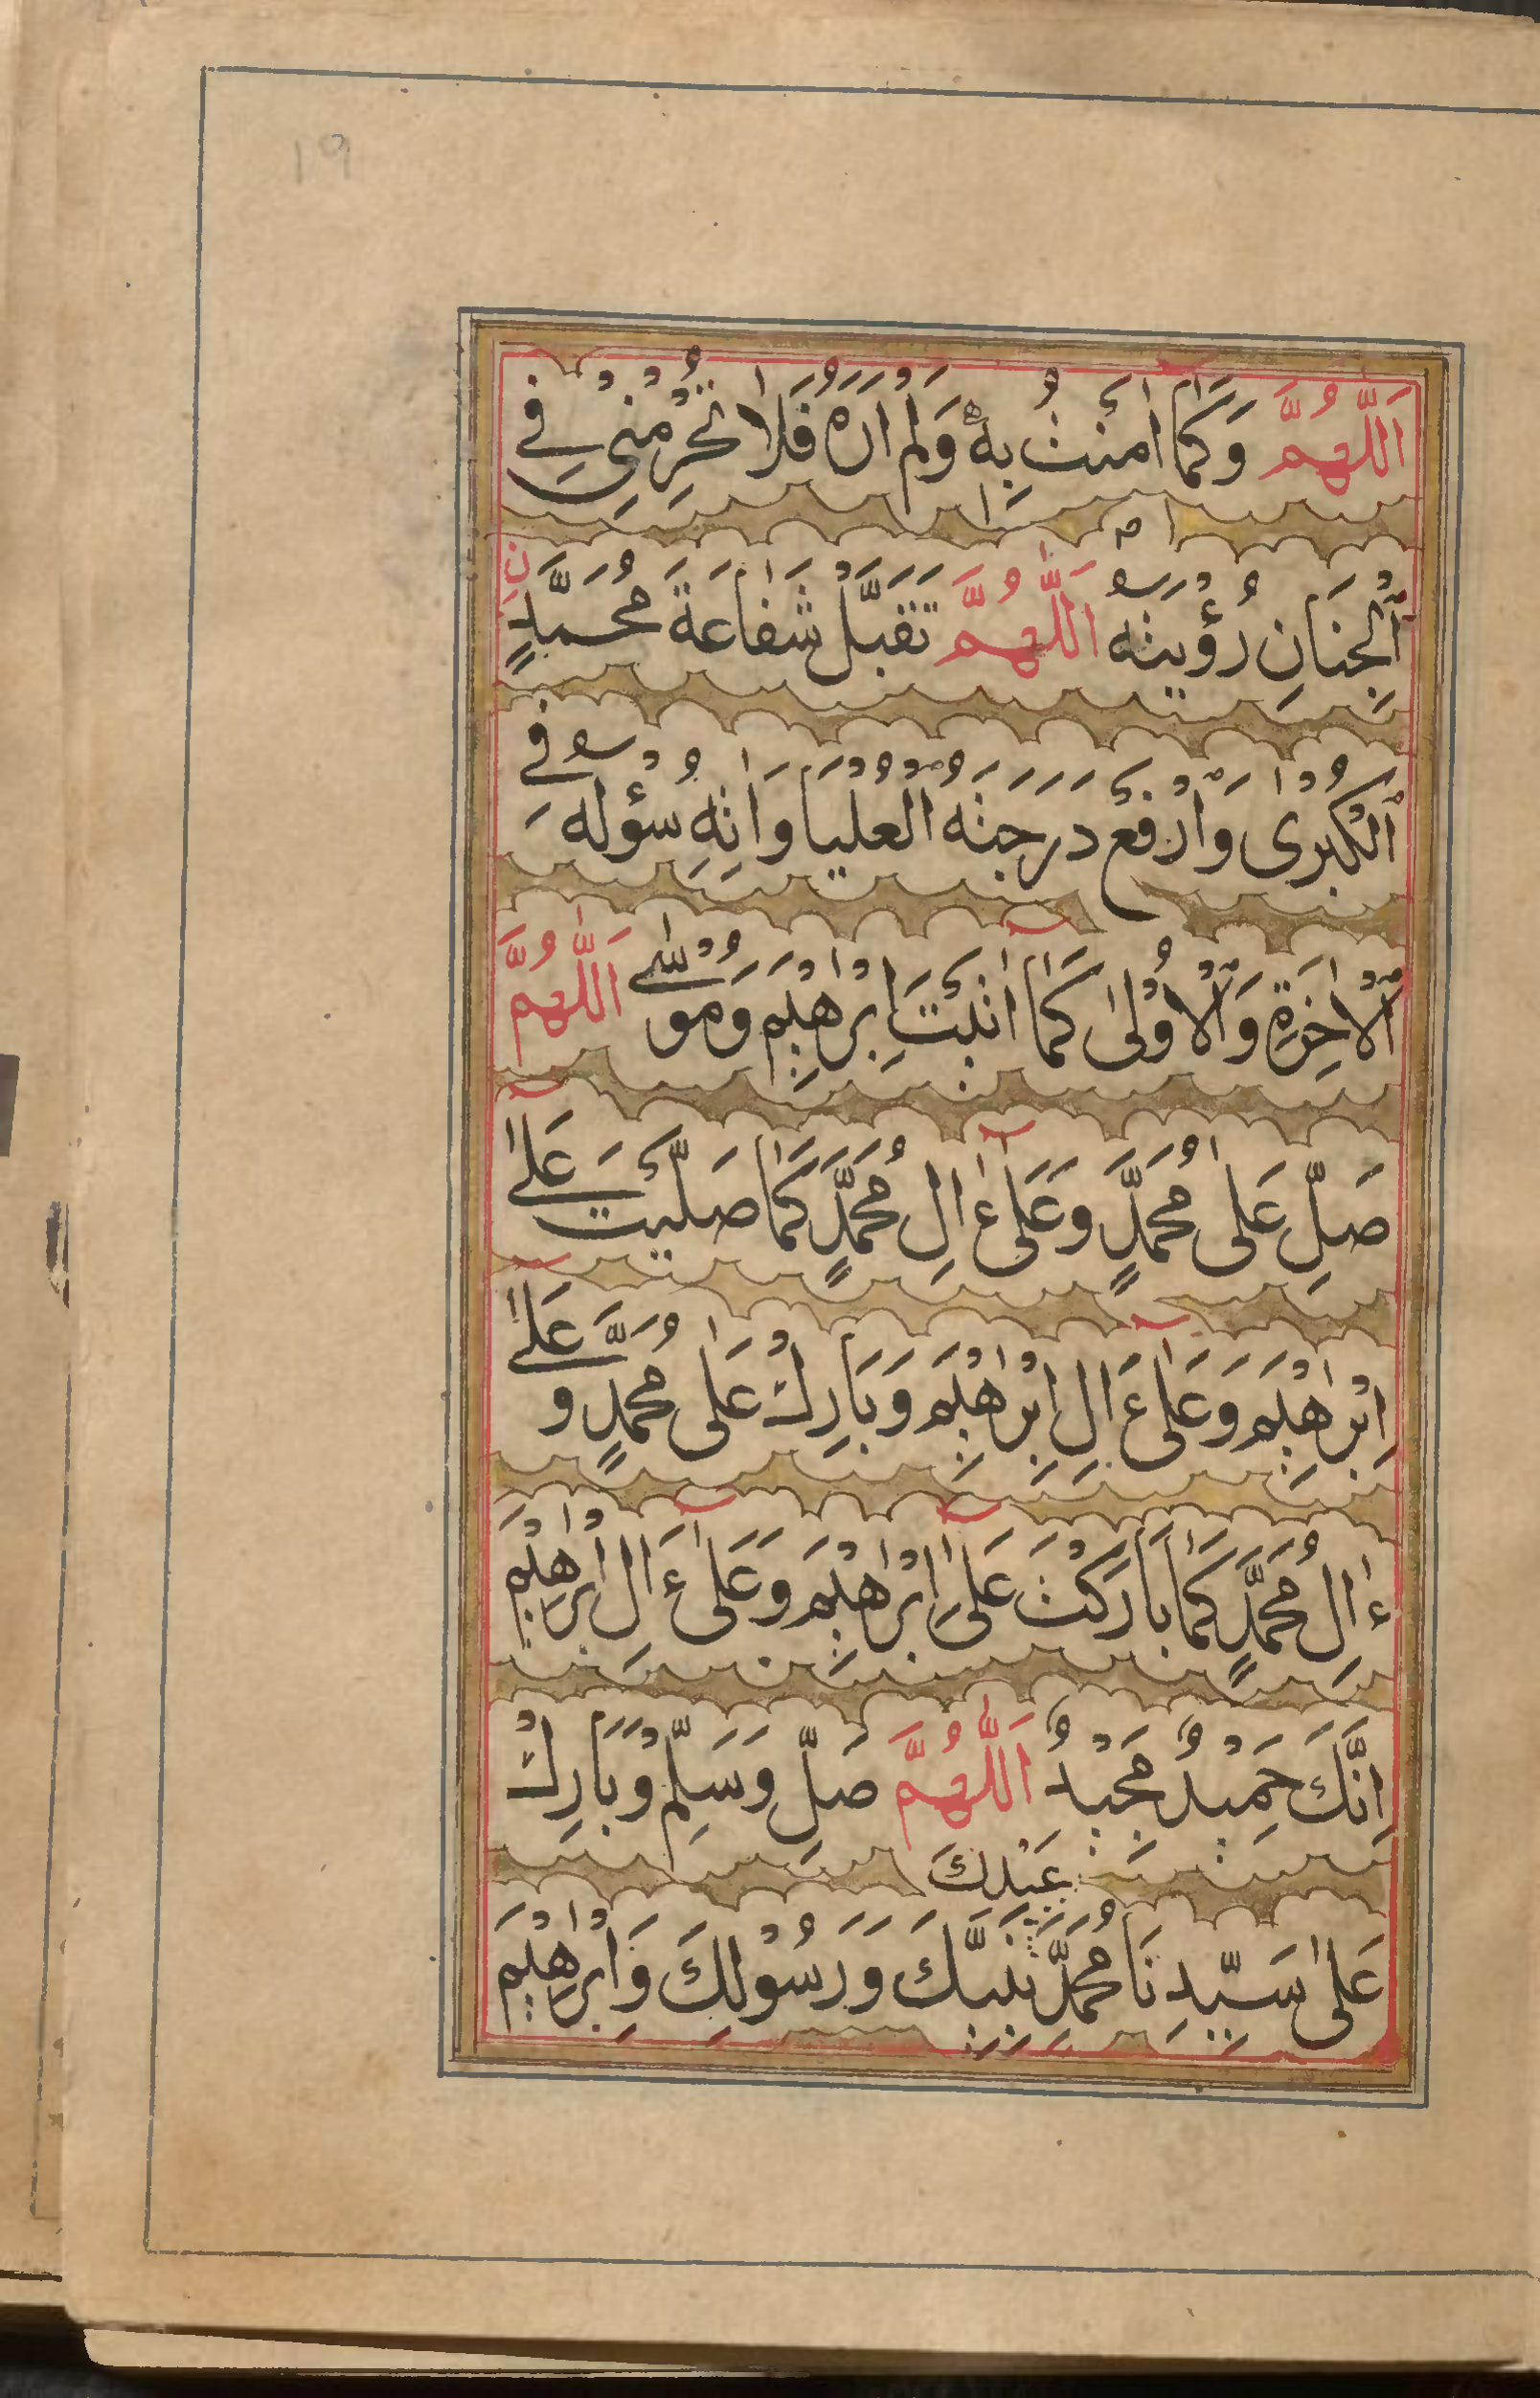 ١٩
اَللّٰهُمَّ وَكَمَا اٰمَنْتُ بِهٖ وَلَمْ اَرَهُ فَلَا تُحْرِمْنِيْ فِي
الْجِنَانِ رُؤْيَتَهٗ اَللّٰهُمَّ تَقَبَّلْ شَفَاعَةَ مُحَمَّدٍ نِ
الْكُبْرٰى وَارْفَعْ دَرَجَتَهُ الْعُلْيَا وَاٰتِهٖ سُؤْلَهٗ فِي
الْاٰخِرَةِ وَالْاُوْلٰى كَمَا اٰتَيْتَ اِبْرٰهِيْمَ وَمُوْسٰى اَللّٰهُمَّ
صَلِّ عَلٰى مُحَمَّدٍ وَعَلٰى ءَالِ مُحَمَّدٍ كَمَا صَلَّيْتَ عَلٰى
اِبْرٰهِيْمَ وَعَلٰى ءَالِ اِبْرٰهِيْمَ وَبَارِكْ عَلٰى مُحَمَّدٍ وَعَلٰى
ءَالِ مُحَمَّدٍ كَمَا بَارَكْتَ عَلٰى اِبْرٰهِيْمَ وَعَلٰى ءَالِ اِبْرٰهِيْمَ
اِنَّكَ حَمِيْدٌ مَجِيْدٌ اَللّٰهُمَّ صَلِّ وَسَلِّمْ وَبَارِكْ
عَبْدِكَ
عَلٰى سَيِّدِنَا مُحَمَّدٍ نَبِيِّكَ وَرَسُوْلِكَ وَاِبْرٰهِيْمَ